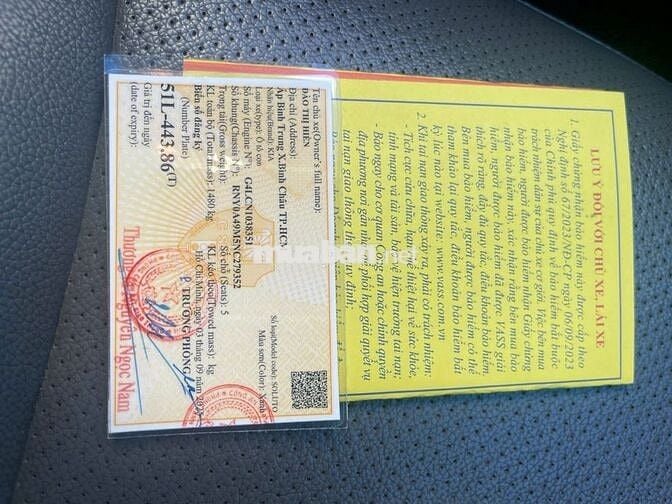 Tên chủ xe(Owner's full name):
ĐÀO THỊ HIỀN
Địa chỉ (Address):
Ấp Bình Trung X.Bình Châu TP.HCM
Nhãn hiệu(Brand): KIA
Số loại(Model code): SOLUTO
Loại xe(type): Ô tô con
Màu sơn(Color): Xanh
Số máy (Engine N°): G4LCN1038351
Số khung(Chassis N°): RNYFA49M5NC279352
Trọng tải(Gross weight):
Số chỗ (Seats): 5
KL toàn bộ (Total mass): 1480 kg
KL kéo theo(Towed mass): kg
Biển số đăng ký
Hồ Chí Minh, ngày 03 tháng 09 năm
(Number Plate)
TRƯỞNG PHÒNG
51L-443.86(T)
Giá trị đến ngày
(date of expiry):
Nguyễn Ngọc Nam
muaban
LƯU Ý ĐỐI VỚI CHỦ XE, LÁI XE
1. Giấy chứng nhận bảo hiểm này được cấp theo
Nghị định số 67/2023/NĐ-CP ngày 06/09/2023
của Chính phủ quy định về bảo hiểm bắt buộc
trách nhiệm dân sự của chủ xe cơ giới. Việc bên mua
bảo hiểm, người được bảo hiểm nhận Giấy chứng
nhận bảo hiểm này, xác nhận rằng bên mua bảo
hiểm, người được bảo hiểm đã được VASS giải
thích rõ ràng, đầy đủ quy tắc, điều khoản bảo hiểm.
Bên mua bảo hiểm, người được bảo hiểm có thể
tham khảo lại quy tắc, điều khoản bảo hiểm bất
kỳ lúc nào tại website: www.vass.com.vn
2. Khi tai nạn giao thông xảy ra, phải có trách nhiệm:
- Tích cực cứu chữa, hạn chế thiệt hại về sức khỏe,
tính mạng và tài sản, bảo vệ hiện trường tai nạn;
- Báo ngay cho cơ quan Công an hoặc chính quyền
địa phương nơi gần nhất để phối hợp giải quyết vụ
tai nạn giao thông theo quy định;